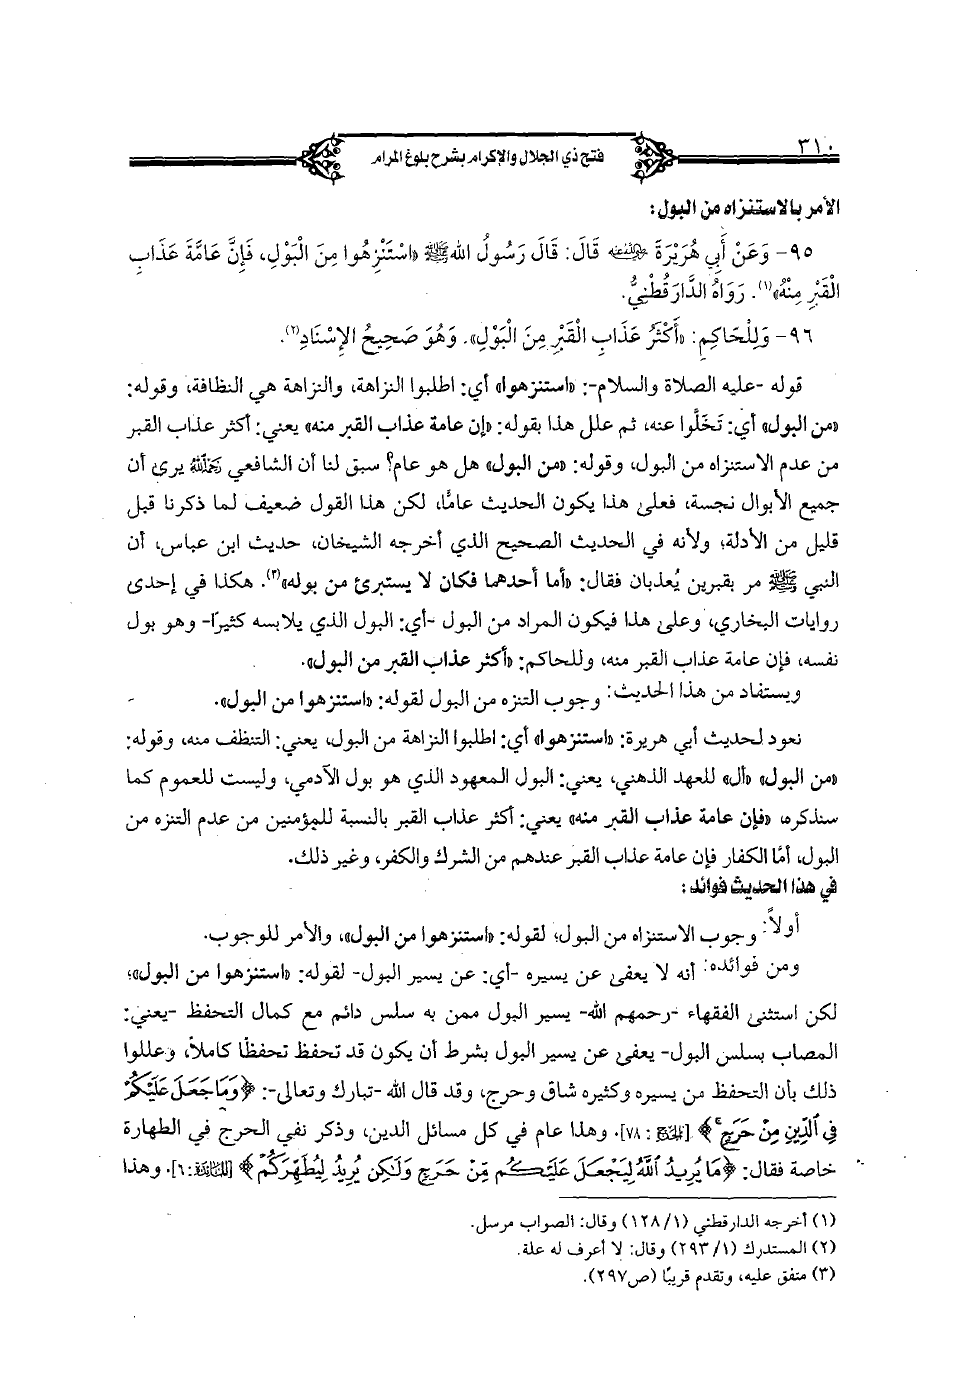 ٣١٠
فتح ذي الجلال والإكرام بشرح بلوغ المرام
الأمر بالاستنزاه من البول:
٩٥- وَعَنْ أَبِي هُرَيْرَةَ رضي الله عنه قَالَ: قَالَ رَسُولُ اللهِ ﷺ «اسْتَنْزِهُوا مِنَ الْبَوْلِ، فَإِنَّ عَامَّةَ عَذَابِ
الْقَبْرِ مِنْهُ»(١). رَوَاهُ الدَّارَقُطْنِيُّ.
٩٦- وَلِلْحَاكِمِ: «أَكْثَرُ عَذَابِ الْقَبْرِ مِنَ الْبَوْلِ». وَهُوَ صَحِيحُ الإِسْنَادِ(٢).
قوله -عليه الصلاة والسلام-: «استنزهوا» أي: اطلبوا النزاهة، والنزاهة هي النظافة، وقوله:
«من البول» أي: تَخَلَّوا عنه، ثم علل هذا بقوله: «إن عامة عذاب القبر منه» يعني: أكثر عذاب القبر
من عدم الاستنزاه من البول، وقوله: «من البول» هل هو عام؟ سبق لنا أن الشافعي رحمه الله يرى أن
جميع الأبوال نجسة، فعلى هذا يكون الحديث عامًّا، لكن هذا القول ضعيف لما ذكرنا قبل
قليل من الأدلة؛ ولأنه في الحديث الصحيح الذي أخرجه الشيخان، حديث ابن عباس، أن
النبي ﷺ مر بقبرين يُعذبان فقال: «أما أحدهما فكان لا يستبرئ من بوله»(٣). هكذا في إحدى
روايات البخاري، وعلى هذا فيكون المراد من البول -أي: البول الذي يلابسه كثيرًا- وهو بول
نفسه، فإن عامة عذاب القبر منه، وللحاكم: «أكثر عذاب القبر من البول».
ويستفاد من هذا الحديث: وجوب التنزه من البول لقوله: «استنزهوا من البول».
نعود لحديث أبي هريرة: «استنزهوا» أي: اطلبوا النزاهة من البول، يعني: التنظف منه، وقوله:
«من البول» «أل» للعهد الذهني، يعني: البول المعهود الذي هو بول الآدمي، وليست للعموم كما
سنذكره، «فإن عامة عذاب القبر منه» يعني: أكثر عذاب القبر بالنسبة للمؤمنين من عدم التنزه من
البول، أمَّا الكفار فإن عامة عذاب القبر عندهم من الشرك والكفر، وغير ذلك.
في هذا الحديث فوائد:
أولاً: وجوب الاستنزاه من البول؛ لقوله: «استنزهوا من البول»، والأمر للوجوب.
ومن فوائده: أنه لا يعفى عن يسيره -أي: عن يسير البول- لقوله: «استنزهوا من البول»؛
لكن استثنى الفقهاء -رحمهم الله- يسير البول ممن به سلس دائم مع كمال التحفظ -يعني:
المصاب بسلس البول- يعفى عن يسير البول بشرط أن يكون قد تحفظ تحفظًا كاملاً، وعللوا
ذلك بأن التحفظ من يسيره وكثيره شاق وحرج، وقد قال الله -تبارك وتعالى-: ﴿وَمَا جَعَلَ عَلَيْكُمْ
فِي ٱلدِّينِ مِنْ حَرَجٍ﴾ [الحج: ٧٨]. وهذا عام في كل مسائل الدين، وذكر نفي الحرج في الطهارة
خاصة فقال: ﴿مَا يُرِيدُ ٱللَّهُ لِيَجْعَلَ عَلَيْكُم مِّنْ حَرَجٍ وَلَٰكِن يُرِيدُ لِيُطَهِّرَكُمْ﴾ [المائدة: ٦]. وهذا
(١) أخرجه الدارقطني (١/ ١٢٨) وقال: الصواب مرسل.
(٢) المستدرك (١/ ٢٩٣) وقال: لا أعرف له علة.
(٣) متفق عليه، وتقدم قريبًا (ص٢٩٧).